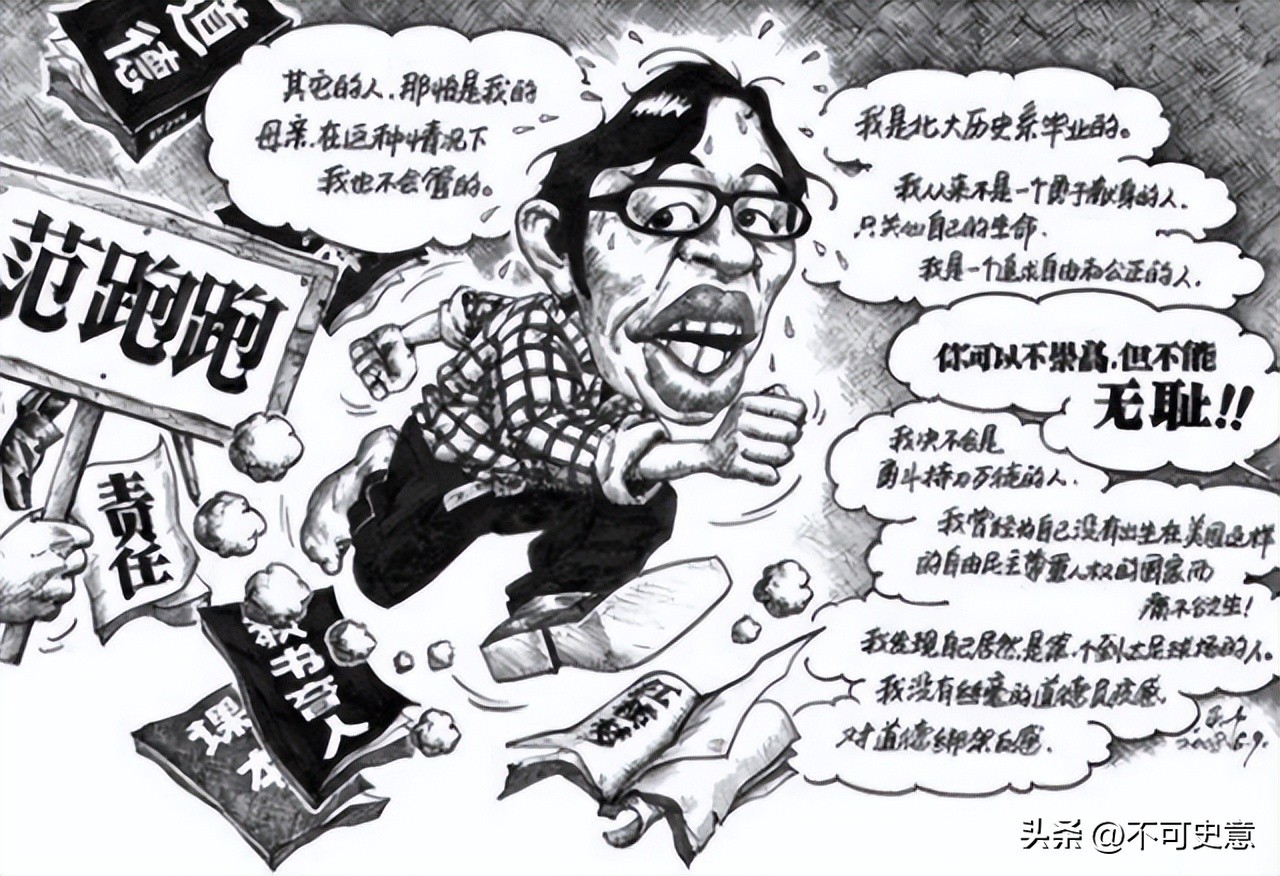 道德
其它的人，那怕是我的
母亲，在这种情况下
我也不会管的。
范跑跑
责任
教书育人
课本
我是北大历史系毕业的。
我从来不是一个勇于献身的人，
只关心自己的生命，
我是一个追求自由和公正的人，
你可以不崇高，但不能
无耻!!
我决不会是
勇斗持刀歹徒的人，
我曾经为自己没有出生在美国这样
的自由民主尊重人权的国家而
痛不欲生！
我发现自己居然是第一个到达足球场的人。
我没有丝毫的道德负疚感
对道德绑架反感，
2008.6.9.
头条 @不可史意